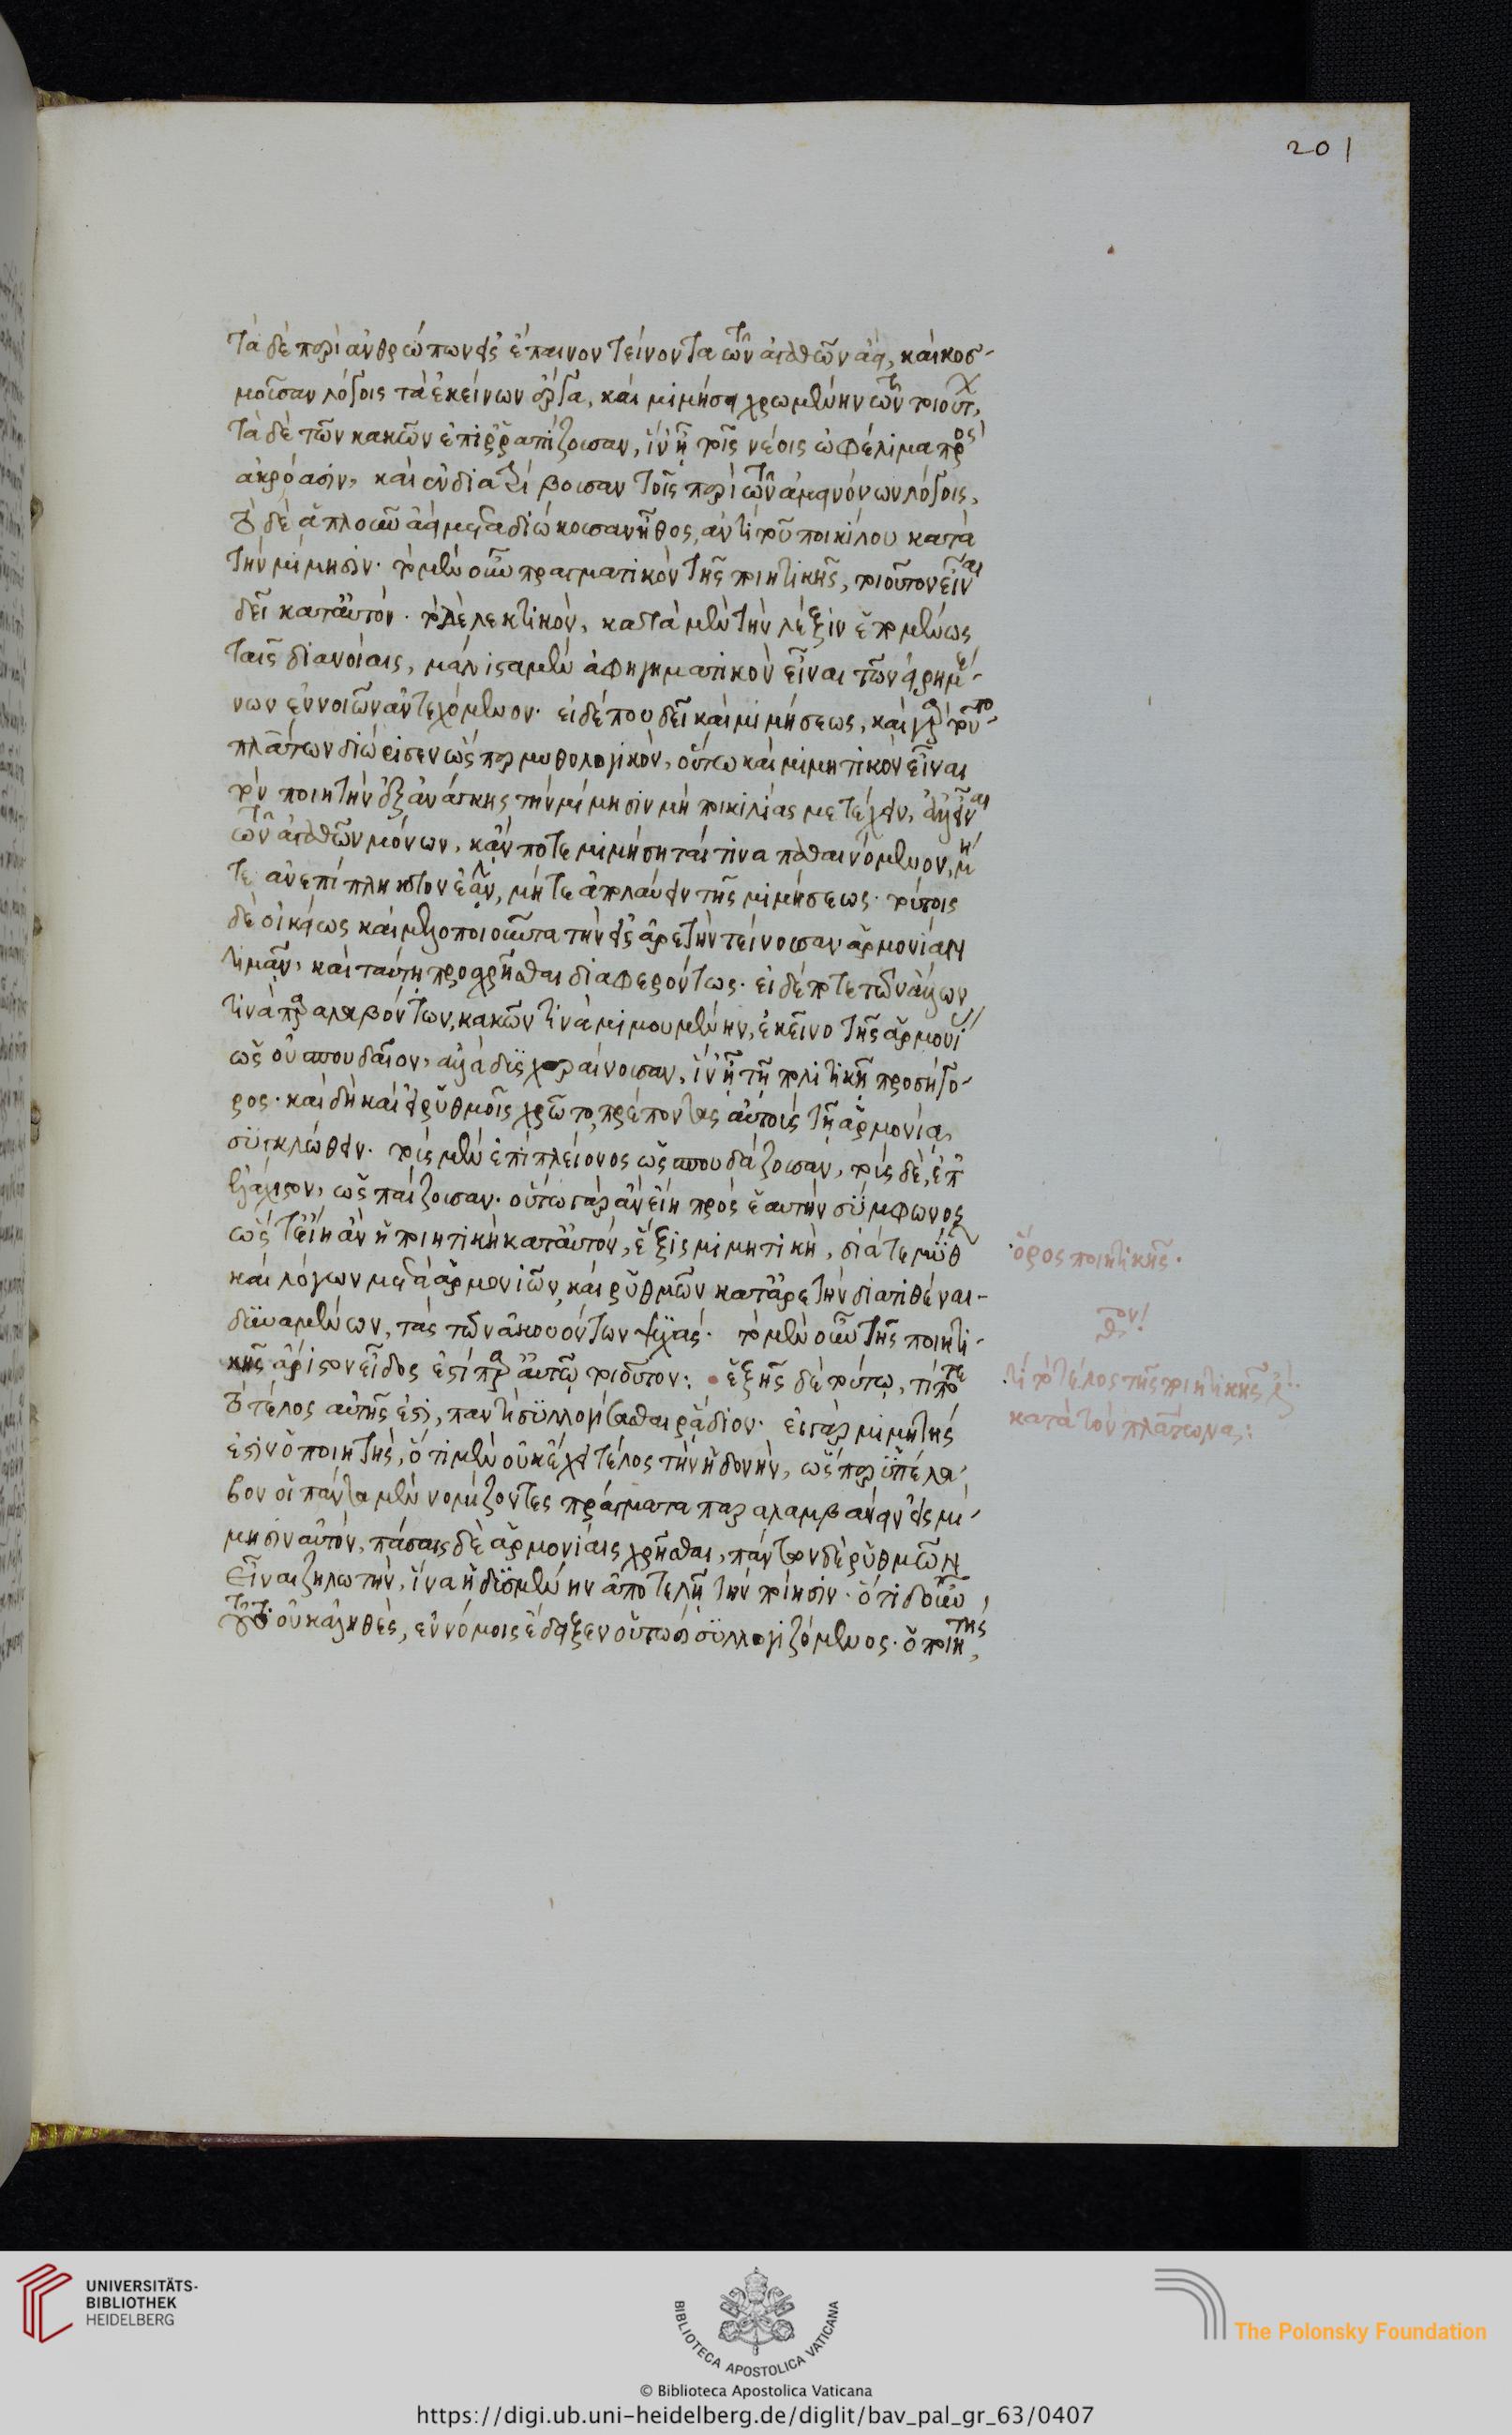 201
τὰ δὲ περὶ ἀνθρώπων εἰς ἔπαινον τείνοντα τῶν ἀγαθῶν ἀεὶ, καὶ κοσ-
μοῦσαν λόγοις τὰ ἐκείνων ἔργα, καὶ μιμήσει χρωμένην τῶν τοιούτ,
τὰ δὲ τῶν κακῶν ἐπιρραπίζουσαν, ἵν ᾖ τοῖς νέοις ὠφέλιμα πρὸς
ἀκρόασιν, καὶ ἐνδιατρίβουσαν τοῖς περὶ τῶν ἀμεινόνων λόγοις,
τὸ δὲ ἁπλοῦν ἀεὶ μεταδιώκουσαν ἦθος, ἀντὶ τοῦ ποικίλου κατὰ
τὴν μίμησιν· τὸ μὲν οὖν πραγματικὸν τῆς ποιητικῆς, τοιοῦτον εἶναι
δεῖ κατ αὐτόν· τὸ δὲ λεκτικὸν, κατὰ μὲν τὴν λέξιν ἑπομένως
ταῖς διανοίαις, μάλιστα μὲν ἀφηγηματικὸν εἶναι τῶν εἰρημέ-
νων ἐννοιῶν ἀντεχόμενον· εἰ δέ που δεῖ καὶ μιμήσεως, καὶ γὰρ τοῦτο
πλάτων διώρισεν ὥσπερ μυθολογικὸν, οὕτω καὶ μιμητικὸν εἶναι
τὸν ποιητὴν ἐξ ἀνάγκης τὴν μίμησιν μὴ ποικιλίας μετέχειν, ἀλλ εἶναι
τῶν ἀγαθῶν μόνων, κἄν ποτε μιμήσηταί τινα παθαινόμενον, μή
τε ἀνεπίπληκτον ἐᾶν, μήτε ἀπολαύειν τῆς μιμήσεως· τούτοις
δὲ οἰκείως καὶ μελοποιοῦντα τὴν εἰς ἀρετὴν τείνουσαν ἁρμονίαν
τιμᾶν, καὶ ταύτῃ προσχρῆσθαι διαφερόντως· εἰ δέ ποτε τῶν ἄλλων
τινὰ παραλαβόντων, κακῶν τινὰ μιμουμένην, ἐκεῖνο τῆς ἁρμονί
ὡς οὐ σπουδαῖον, ἀλλὰ δυσχεραίνουσαν, ἵν ᾖ τῇ πολιτικῇ προσήγο-
ρος· καὶ δὴ καὶ εἰ ῥυθμοῖς χρῷτο, πρέποντας αὐτοὺς τῇ ἁρμονίᾳ
συγκλώθειν· τοῖς μὲν ἐπὶ πλείονος ὡς σπουδάζουσαν, τοῖς δὲ, ἐπ
ἐλάχιστον, ὡς παίζουσαν· οὕτω γὰρ ἂν εἴη πρὸς ἑαυτὴν σύμφωνος
ὥστ εἴη ἂν ἡ ποιητικὴ κατ αὐτόν, ἕξις μιμητικὴ, διά τε μύθ
καὶ λόγων μετὰ ἁρμονιῶν, καὶ ῥυθμῶν κατ ἀρετὴν διατιθέναι
δυναμένων, τὰς τῶν ἀκουόντων ψυχάς· τὸ μὲν οὖν τῆς ποιητι-
κῆς ἄριστον εἶδος ἐστὶ παρ αὐτῷ τοιοῦτον: ἑξῆς δὲ τούτῳ, τί ποτε
τὸ τέλος αὐτῆς ἐστι, παντὶ συλλογίσασθαι ῥᾴδιον· εἰ γὰρ μιμητής
ἐστιν ὁ ποιητὴς, ὅτι μὲν οὐκ ἔχει τέλος τὴν ἡδονὴν, ὥσπερ ὑπέλα-
βον οἱ πάντα μὲν νομίζοντες πράγματα παραλαμβάνειν εἰς μί-
μησιν αὐτὸν, πάσαις δὲ ἁρμονίαις χρῆσθαι, πάντων δὲ ῥυθμῶν
εἶναι ζηλωτὴν, ἵνα ἡδυσμένην ἀποτελῇ τὴν ποίησιν· ὅτι δ οὖν
τοῦτο οὐκ ἀληθὲς, ἐν νόμοις ἔδειξεν οὑτωσὶ συλλογιζόμενος· ὁ ποιητής,
ὅρος ποιητικῆς·
τί τὸ τέλος τῆς ποιητικῆς
κατὰ τὸν πλάτωνα:
UNIVERSITÄTS-
BIBLIOTHEK
HEIDELBERG
BIBLIOTECA APOSTOLICA VATICANA
The Polonsky Foundation
© Biblioteca Apostolica Vaticana
https://digi.ub.uni-heidelberg.de/diglit/bav_pal_gr_63/0407